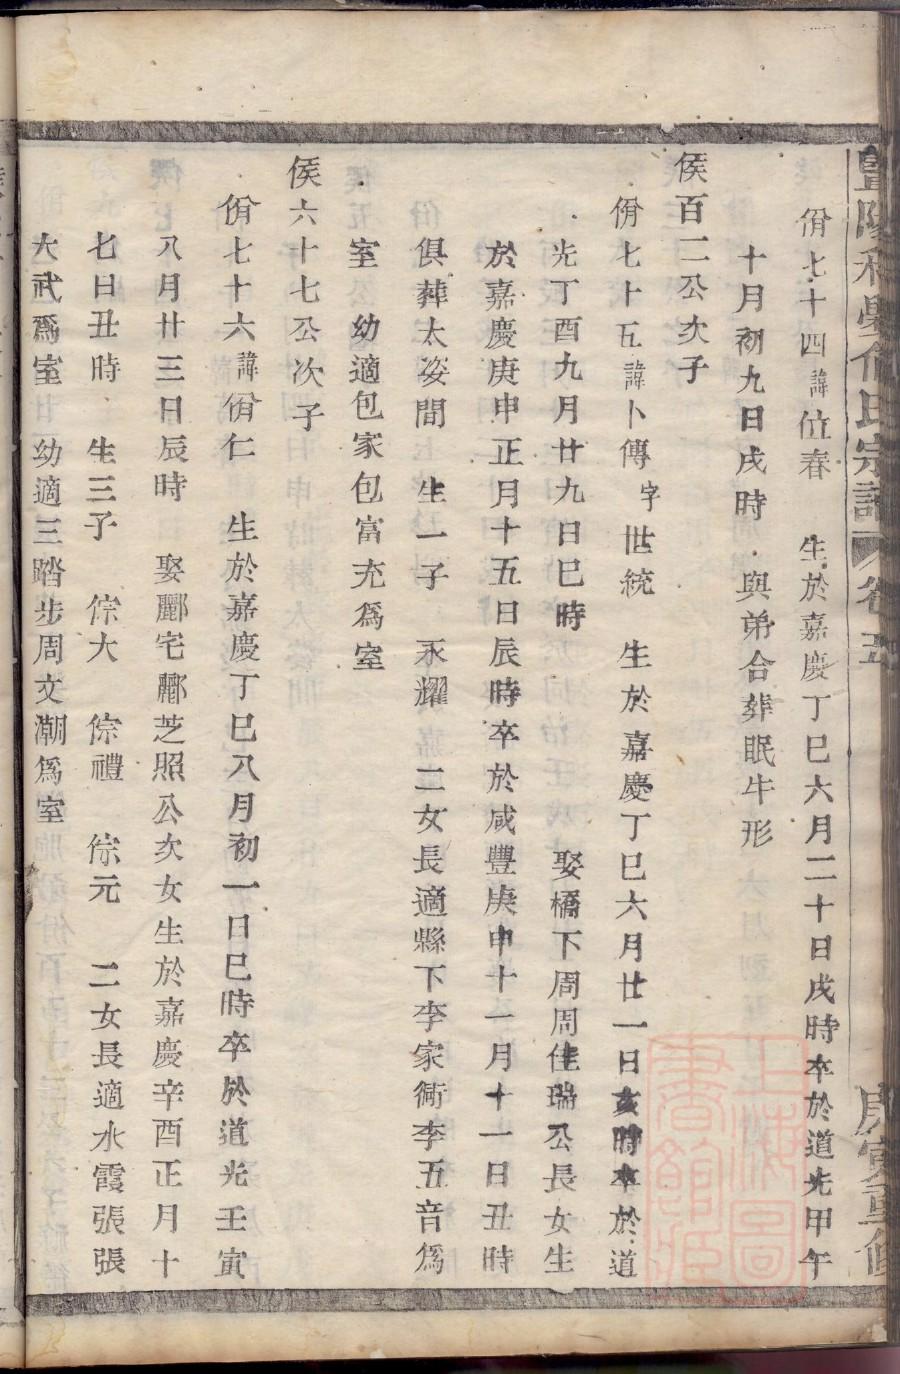 佾七十四諱位春　生於嘉慶丁巳六月二十日戌時卒於道光甲午
十月初九日戌時　與弟合葬眠牛形
侯百二公次子
佾七十五諱卜傳字世統　生於嘉慶丁巳六月廿一日亥時卒於道
光丁酉九月廿九日巳時　娶橋下周周佳瑞公長女生
於嘉慶庚申正月十五日辰時卒於咸豐庚申十一月十一日丑時
俱葬太姿間　生一子　承耀　二女長適縣下李家衕李五音爲
室　幼適包家包富充爲室
侯六十七公次子
佾七十六諱佾仁　生於嘉慶丁巳八月初一日巳時卒於道光壬寅
八月廿三日辰時　娶酈宅酈芝照公次女生於嘉慶辛酉正月十
七日丑時　生三子　倧大　倧禮　倧元　二女長適水霞張張
大武爲室　幼適三踏步周文潮爲室
宗譜　卷五
戊寅重修